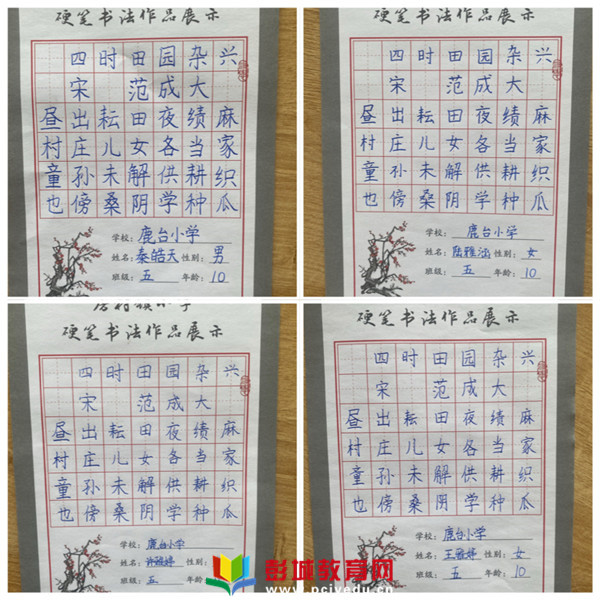 硬笔书法作品展示
四时田园杂兴
宋 范成大
昼出耘田夜绩麻
村庄儿女各当家
童孙未解供耕织
也傍桑阴学种瓜
学校：鹿台小学
姓名：秦皓天 性别：男
班级：五 年龄：10
硬笔书法作品展示
四时田园杂兴
宋 范成大
昼出耘田夜绩麻
村庄儿女各当家
童孙未解供耕织
也傍桑阴学种瓜
学校：鹿台小学
姓名：陆雅涵 性别：女
班级：五 年龄：10
硬笔书法作品展示
四时田园杂兴
宋 范成大
昼出耘田夜绩麻
村庄儿女各当家
童孙未解供耕织
也傍桑阴学种瓜
学校：鹿台小学
姓名：许 婷 性别：
班级：五
硬笔书法作品展示
四时田园杂兴
宋 范成大
昼出耘田夜绩麻
村庄儿女各当家
童孙未解供耕织
也傍桑阴学种瓜
学校：鹿台小学
姓名：王雅婷 性别：女
班级：五 年龄：10
彭城教育网
www.pcjyedu.cn